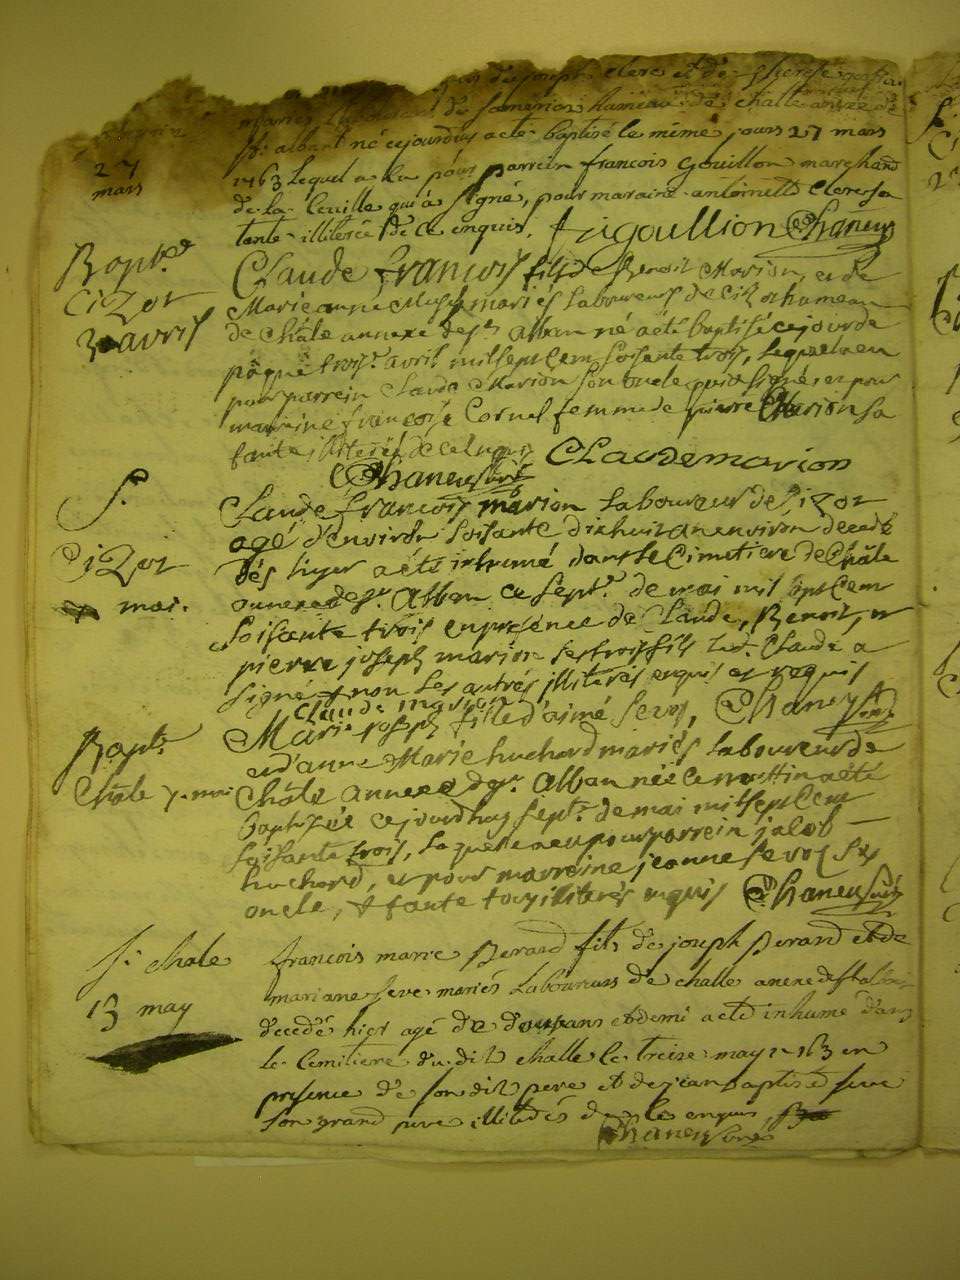 de joseph clerc et de
mariés laboureurs de hameau de challe annexe de
27
mars
st. albant né cejourdhuy a eté baptisé le même jours 27 mars
1763 Lequel a eu pour parrein françois Gouillon marchand
de la qui a signé, pour maraine antoinette clerc sa
tante illiterée de ce enquis. frigoullion Chaneu
Bapt.e
Cizor
3 avril
CLaude françois fils de Benoit Marion et de
Marie anne mariés Laboureurs de Cizor hameau
de Châle annexe de st alban né a eté baptisé ce jour de
pâque trois.e avril mil sept cem soisante trois, Lequel a eu
pour parrein Claude Marion son oncle qui a signé, et pour
marreine françoise Cornel femme de pierre Marion sa
tante illiterée de ce
Chaneu CLaude marion
S.
Cizor
7 mai.
Claude françois marion Laboureur de Cizor
agé d'environ soisante dix huit an environ decedé
dés hyer a eté inhumé dans le Cimetiere de Châle
annexe de st. Alban ce sept.e de mai mil sept cem
soisante trois en présence de Claude, Benoit, et
pierre joseph marion ses trois fils Led. Claude a
signé et non les autres illiterés enquis et requis
Claude marion
Chaneu
Bapt.e
Châle 7. mai
Marie joseph fille d'aimé sevoz,
et d'anne Marie huchard mariés laboureur de
Châle annexe de st. Alban née ce mattin a été
baptisée cejourdhuy sept.e de mai mil sept cem
soisante trois, laquele a eu pour parrein jacob
huchard, et pour marreine jeanne sevoz ses
oncle, & tante tous illiterés enquis Chaneu
S. chale
13 may
françois marie Perard fils de joseph Perard et de
mariane seve mariés Laboureurs de challe anexe de st alban
decedé hier agé de deux ans et demi a eté inhumé dans
le Cemitiere du dit challe le treize may 1763 en
presence de son dit pere et de jean baptiste seve
son grand pere illiterés de ce enquis
Chaneu